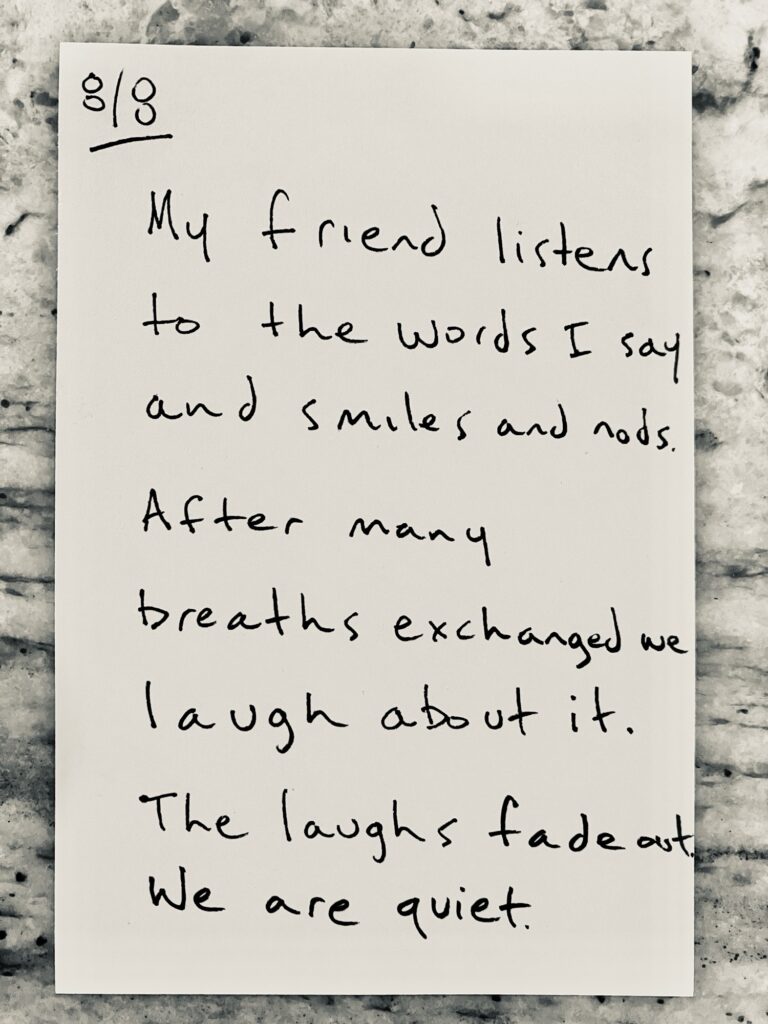 8/8
My friend listens
to the words I say
and smiles and nods.
After many
breaths exchanged we
laugh about it.
The laughs fade out.
We are quiet.